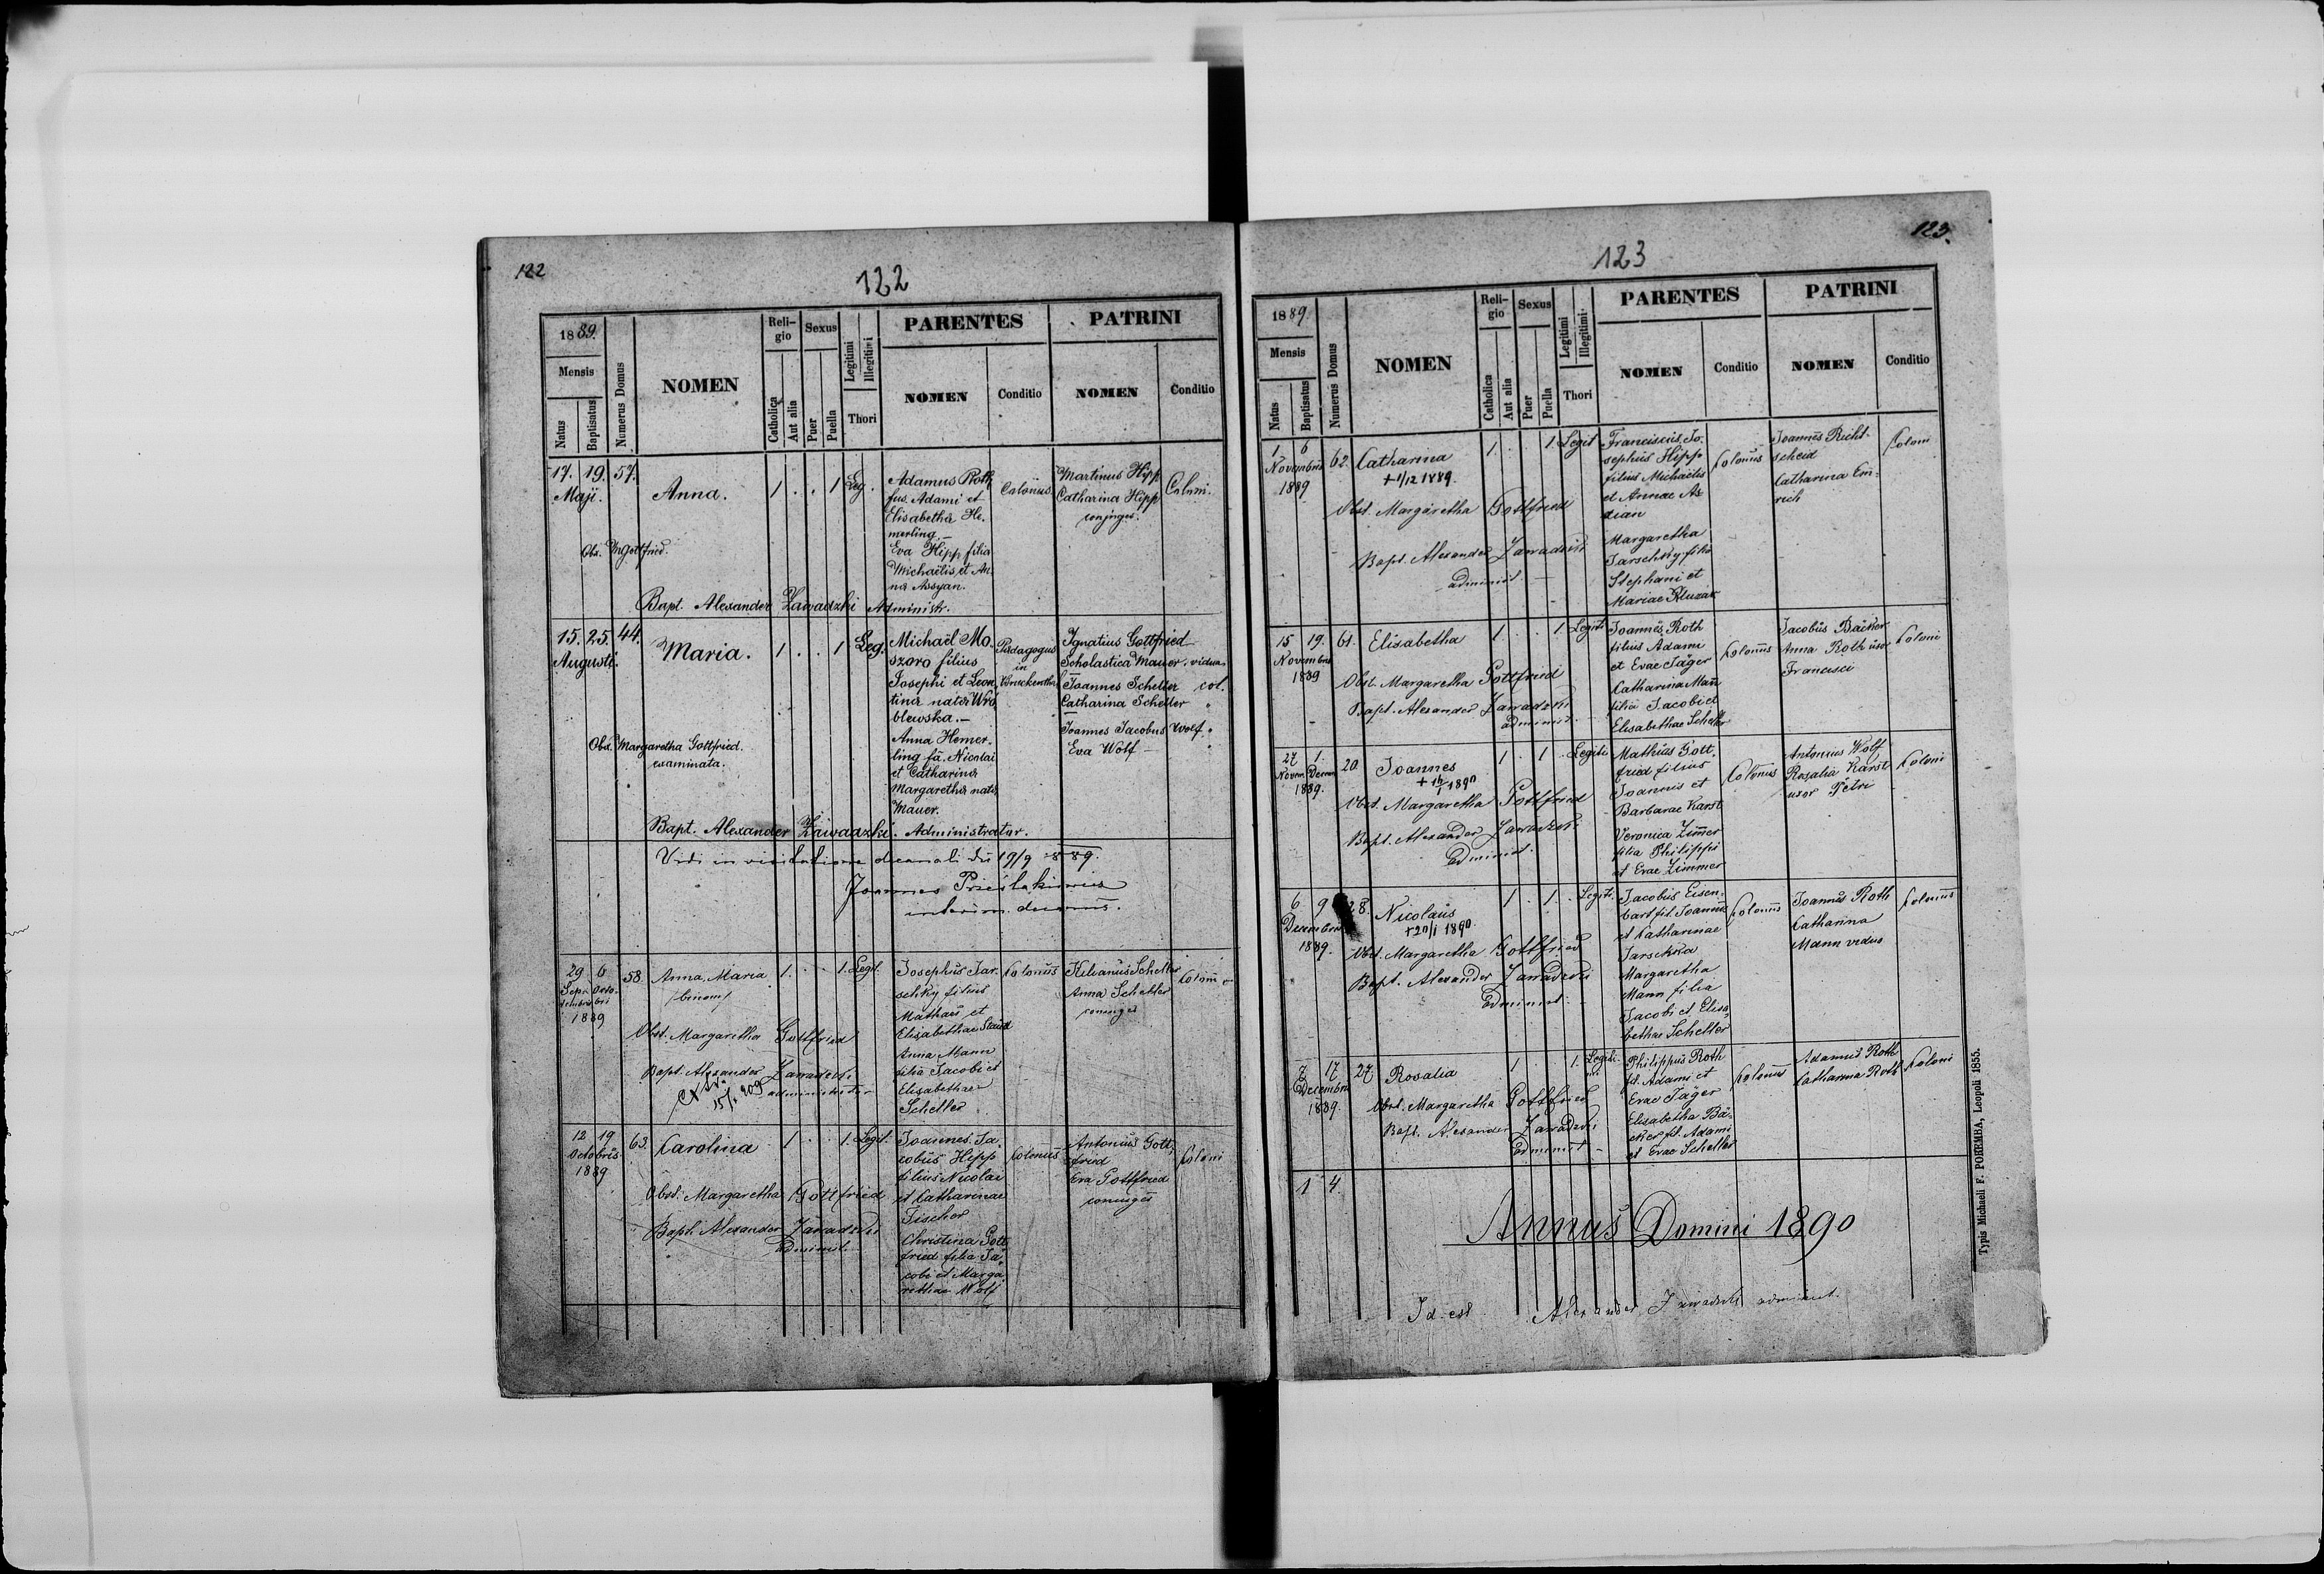 122
122
1889.
Mensis
Natus
Baptisatus
Numerus Domus
NOMEN
Reli-
gio
Catholica
Aut alia
Sexus
Puer
Puella
Legitimi
Illegitimi
Thori
PARENTES
NOMEN
Conditio
PATRINI
NOMEN
Conditio
17. 19. 57.
Maji.
Anna. 1 . . 1 Leg.
Adamus Roth
fus. Adami et
Elisabetha He-
merling.-
Eva Hipp filia
Michaelis et An-
na Assyan.
Colonus
Martinus Hipp
Catharina Hipp
conjuges.
Coloni.
Obs. M Gottfried.
Bapt. Alexander Zawadzki Administr.
15. 25. 44.
Augusti.
Maria. 1 . . 1 Leg.
Michaël Mo-
szoro filius
Josephi et Leon-
tina nata Wró-
blewska.-
Anna Hemer-
ling fa. Nicolai
et Catharina
Margaretha nata
Mauer.
Pædagogus
in
Bruckenthal
Ignatius Gottfried
Scholastica Mauer. vidua
Joannes Scheller col.
Catharina Scheller "
Joannes Jacobus Wolf "
Eva Wolf - "
Obs. Margaretha Gottfried.
examinata.
Bapt. Alexander Zawadzki. Administrator.
Vidi in visitatione decanali die 19/9 889.
Joannes
interim. decanus.
29 6 58
Septembris Octobri
1889
Anna Maria 1 . . 1. Legit.
/binom/
Josephus Jar-
schky filius
Mathaei et
Elisabethae Staud
Anna Mann
filia Jacobi et
Elisabethae
Scheller
Colonus
Kilianus Scheller
Anna Scheller
conjuges
Coloni
Obst. Margaretha Gottfried
Bapt. Alexander Zawadzki
administrator
15/1 909
12 19 63
Octobris
1889
Carolina 1 . . 1. Legit.
Joannes Ja-
cobus Hipp
filius Nicolai
et Catharinae
Fischer
Christina Gott-
fried filia Ja-
cobi et Marga-
rethae Wolf
Colonus
Antonius Gott-
fried
Eva Gottfried
conjuges
Coloni
Obst. Margaretha Gottfried
Bapt. Alexander Zawadzki
Administ.
123
123.
1889.
Mensis
Natus
Baptisatus
Numerus Domus
NOMEN
Reli-
gio
Catholica
Aut alia
Sexus
Puer
Puella
Legitimi
Illegitimi
Thori
PARENTES
NOMEN
Conditio
PATRINI
NOMEN
Conditio
1. 6 62.
Novembris
1889
Catharina 1 . . 1. Legit
+1/12 1889.
Franciscus Jo-
sephus Hipp
filius Michaelis
et Annae As-
sian
Margaretha
Jarschky filia
Stephani et
Mariae Kluzak
Colonus
Joannes Richt-
scheid
Catharina Em-
rich
Coloni
Obst. Margaretha Gottfried
Bapt. Alexander Zawadzki
administ.
15 19. 61.
Novembris
1889
Elisabetha 1 . . 1. Legiti
Joannes Roth
filius Adami
et Evae Jäger
Catharina Mann
filia Jacobi et
Elisabethae Scheller
Colonus
Jacobus Bäcker
Anna Roth uxor
Francisci
Coloni
Obst. Margaretha Gottfried
Bapt. Alexander Zawadzki
administ.
27 1. 20
Novem Decem
1889.
Joannes 1 . 1 . Legiti
1890
Mathias Gott-
fried filius
Joannis et
Barbarae Karst
Veronica Zimmer
filia Philippi
et Evae Zimmer
Colonus
Antonius Wolf
Rosalia Karst
uxor Petri
Coloni
Obst. Margaretha Gottfried
Bapt. Alexander Zawadzki
Administ.
6 9 28.
Decembris
1889.
Nicolaus 1 . 1. . Legiti.
+20/1 1890.
Jacobus Eisen-
bart fil. Joannis
et Catharinae
Jarschka
Margaretha
Mann filia
Jacobi et Elisa-
bethae Scheller
Colonus
Joannes Roth
Catharina
Mann vidua
Colonus
Obst. Margaretha Gottfried
Bapt. Alexander Zawadzki
Administ.
7 17 27
Decembris
1889.
Rosalia 1 . . 1. Legiti-
mi
Philippus Roth
fil. Adami et
Evae Jäger
Elisabetha Bä-
cker fil. Adami
et Evae Scheller
Colonus
Adamus Roth
Catharina Roth
Coloni
Obst. Margaretha Gottfried
Bapt. Alexander Zawadzki
Administ.
1 4.
Annus Domini 1890
Id est Alexander Zawadzki administ.
Typis Michaeli F. POREMBA, Leopoli 1855.